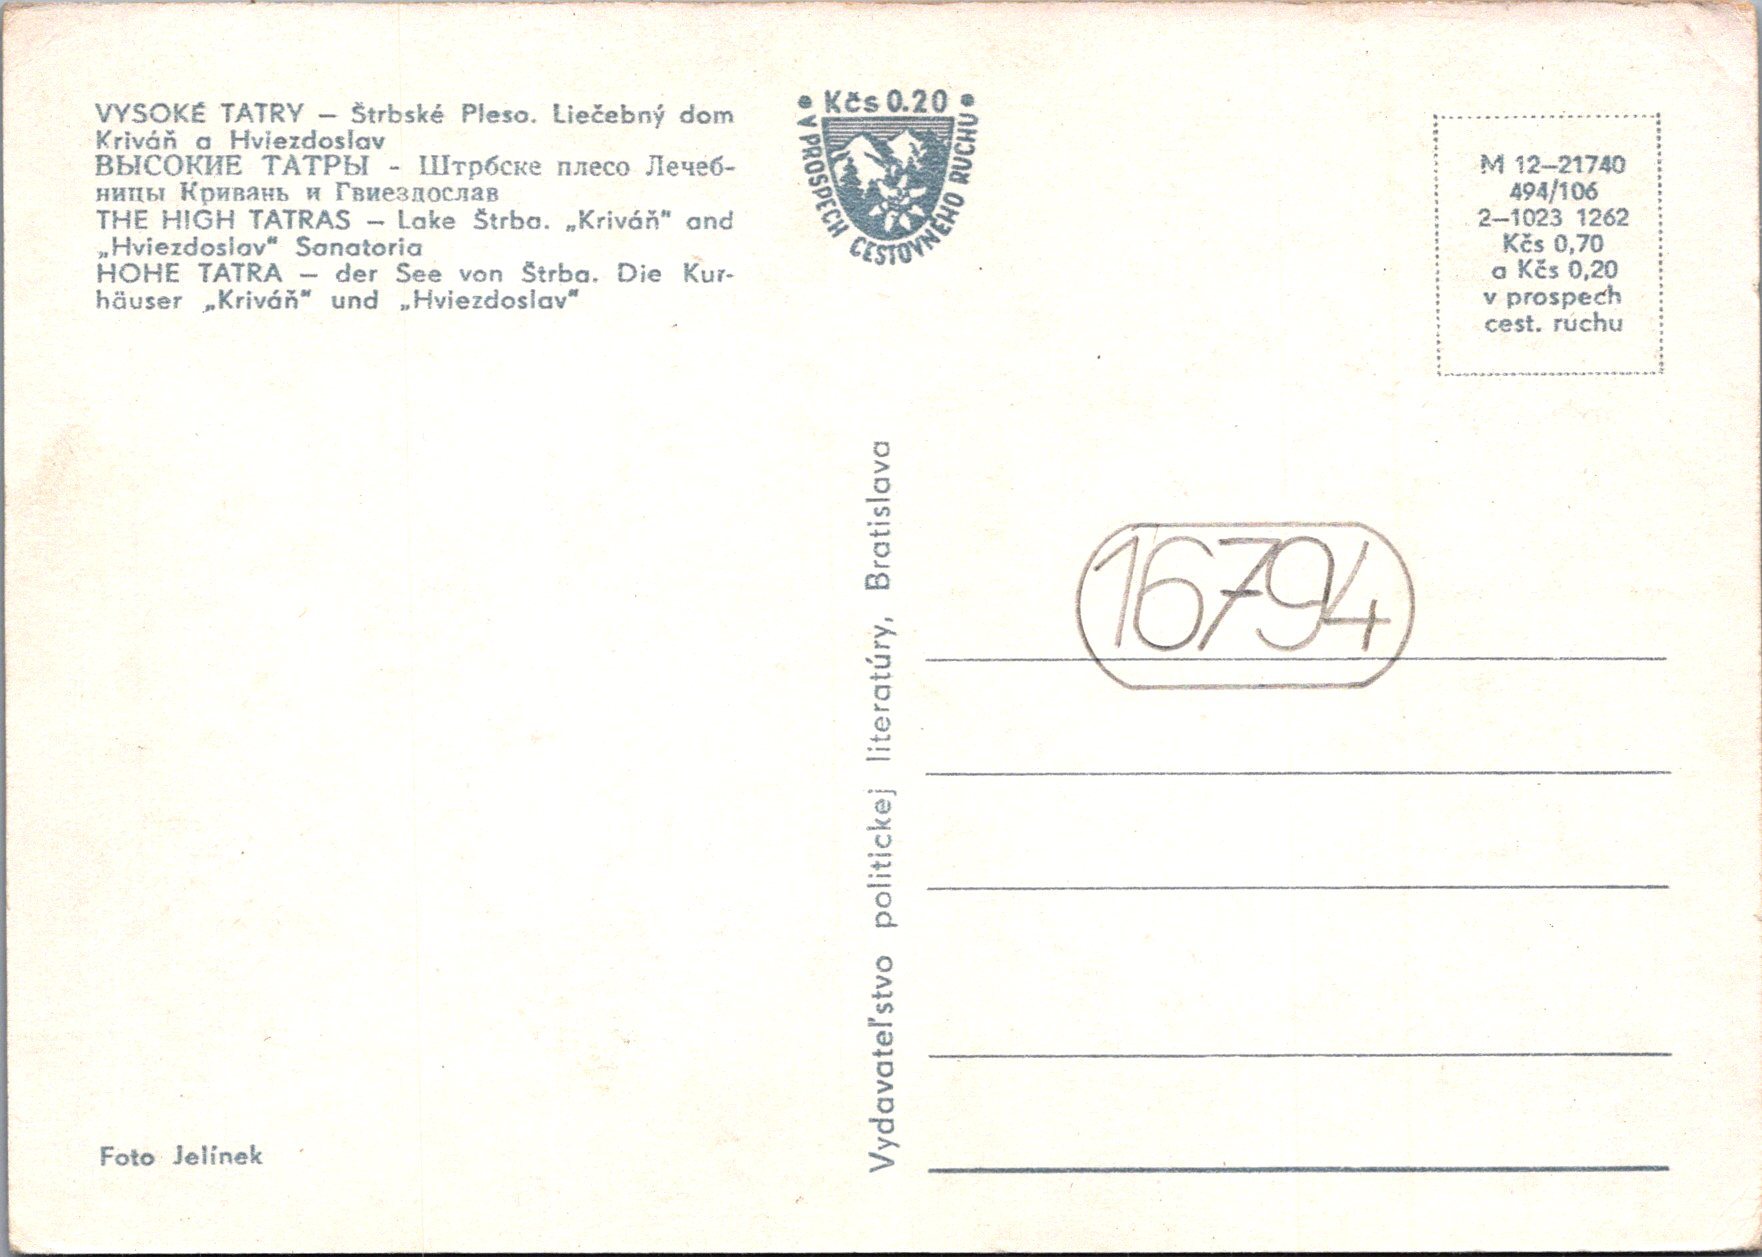 VYSOKÉ TATRY — Štrbské Pleso. Liečebný dom
Kriváň a Hviezdoslav
ВЫСОКИЕ ТАТРЫ - Штрбске плесо Лечеб-
ницы Кривань и Гвиездослав
THE HIGH TATRAS — Lake Štrba. „Kriváň" and
„Hviezdoslav" Sanatoria
HOHE TATRA — der See von Štrba. Die Kur-
häuser „Kriváň" und „Hviezdoslav"
Foto Jelínek
• Kčs 0.20 •
V PROSPECH CESTOVNÉHO RUCHU
Vydavateľstvo politickej literatúry, Bratislava
M 12—21740
494/106
2—1023 1262
Kčs 0,70
a Kčs 0,20
v prospech
cest. ruchu
16794